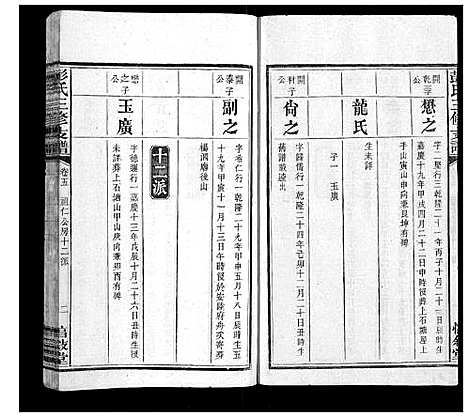 彭氏三修支譜
開乾
公三子
懋之
字二聚行三乾隆二十一年丙子十月二十
嘉慶十九年甲戌四月二十二日甲時
手山寅山申向兼艮坤有碑
龍氏
生未詳
子一 玉廣
開材
公子
尙之
字歸儒行一乾隆二十四年己卯十二月二十日
舊譜載
開泰
公子
副之
字希仁行一乾隆二十九年甲申五月十八日辰時生
十九年甲寅十一月十三日午時
楊泗廟後山
十二派
懋之
公子
玉廣
字德運行一嘉慶十三年戊辰十月二十六日丑時生
未詳葬上石塘山甲山庚向兼卯酉有碑
彭氏三修支譜
卷五
祖仁公房十二派
二